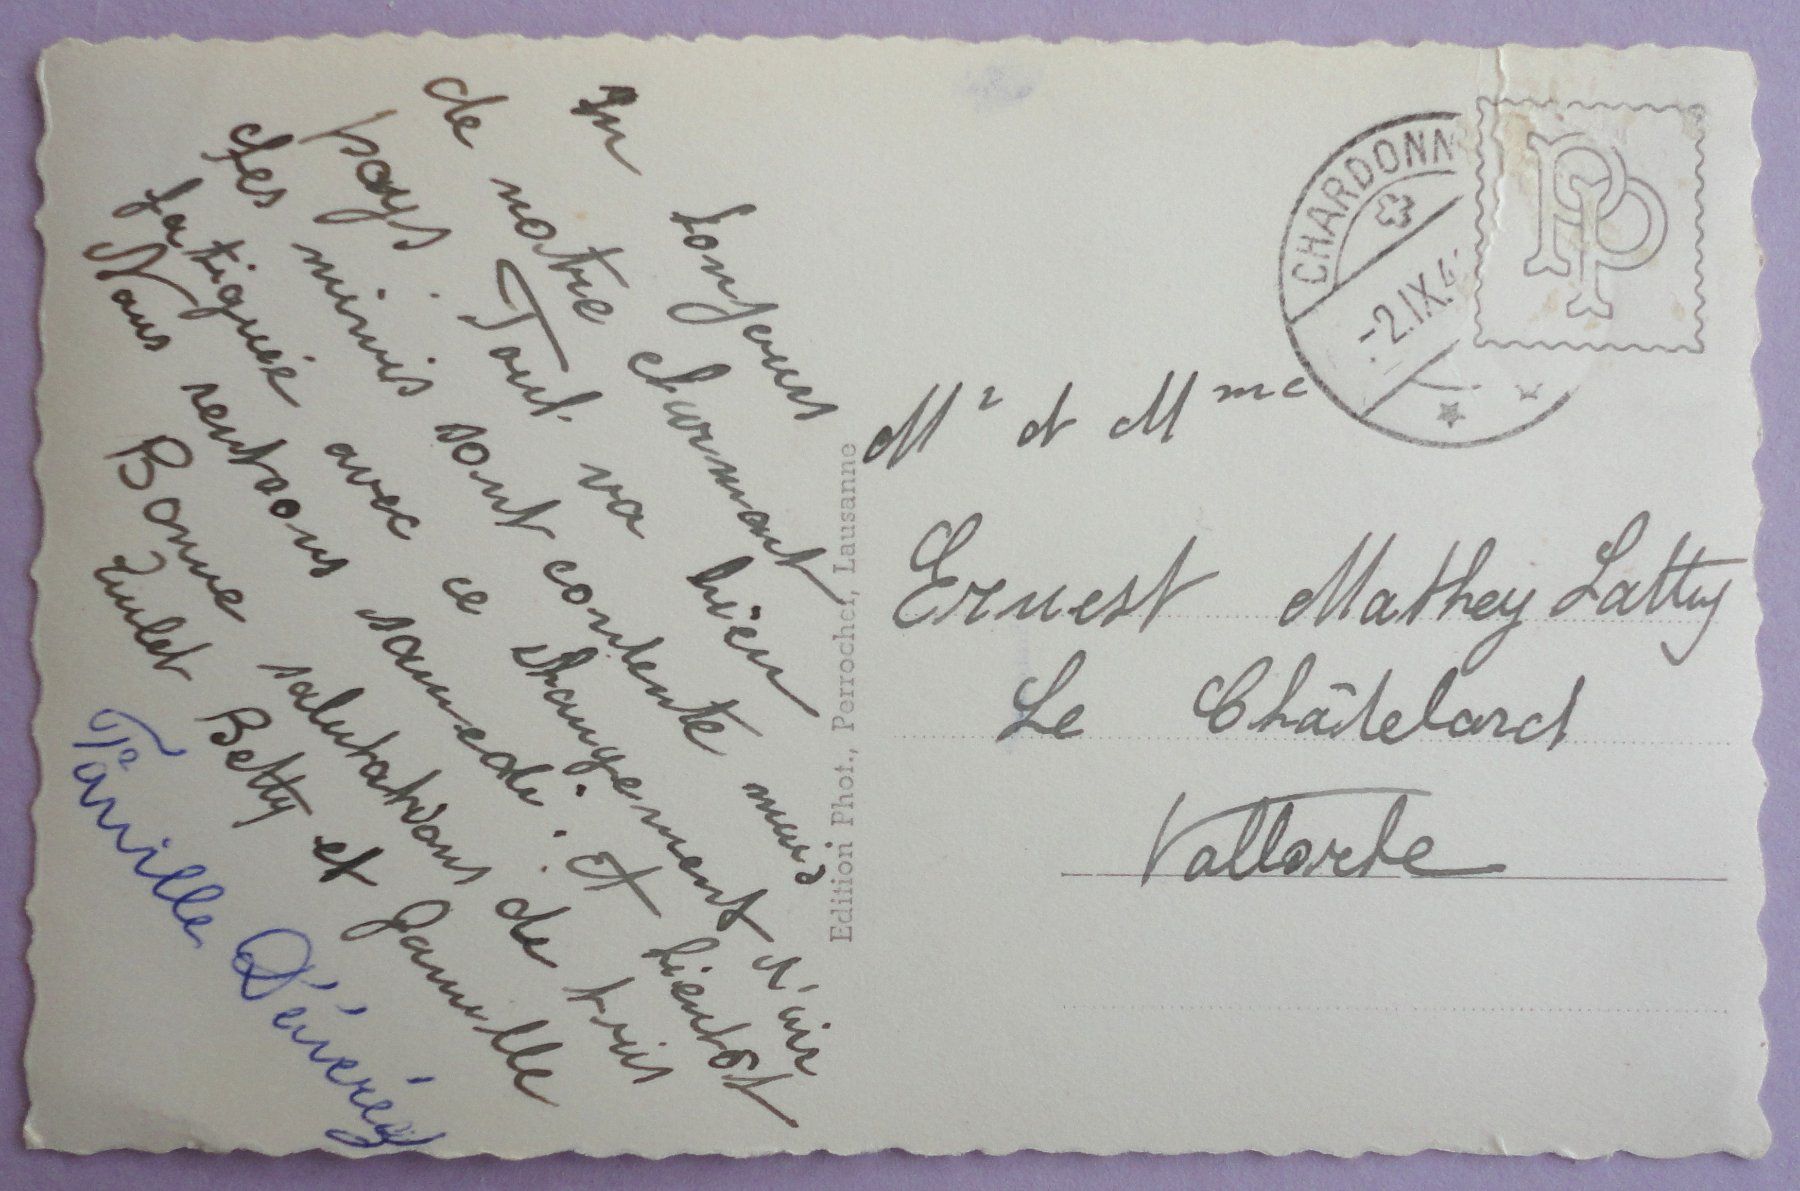 En
toujours
de notre charmant
pays. Tout va bien
les mimis sont contente mais
fatiguée avec ce changement d'air
Nous rentrons samedi. Et bientôt
Bonne salutations de tris
Betty et famille
Famille
Edition Phot., Perrochet, Lausanne
CHARDONN
-2.IX.4
PP
Mr et Mme
Ernest Mathey Lattuy
Le Châtelard
Vallorbe